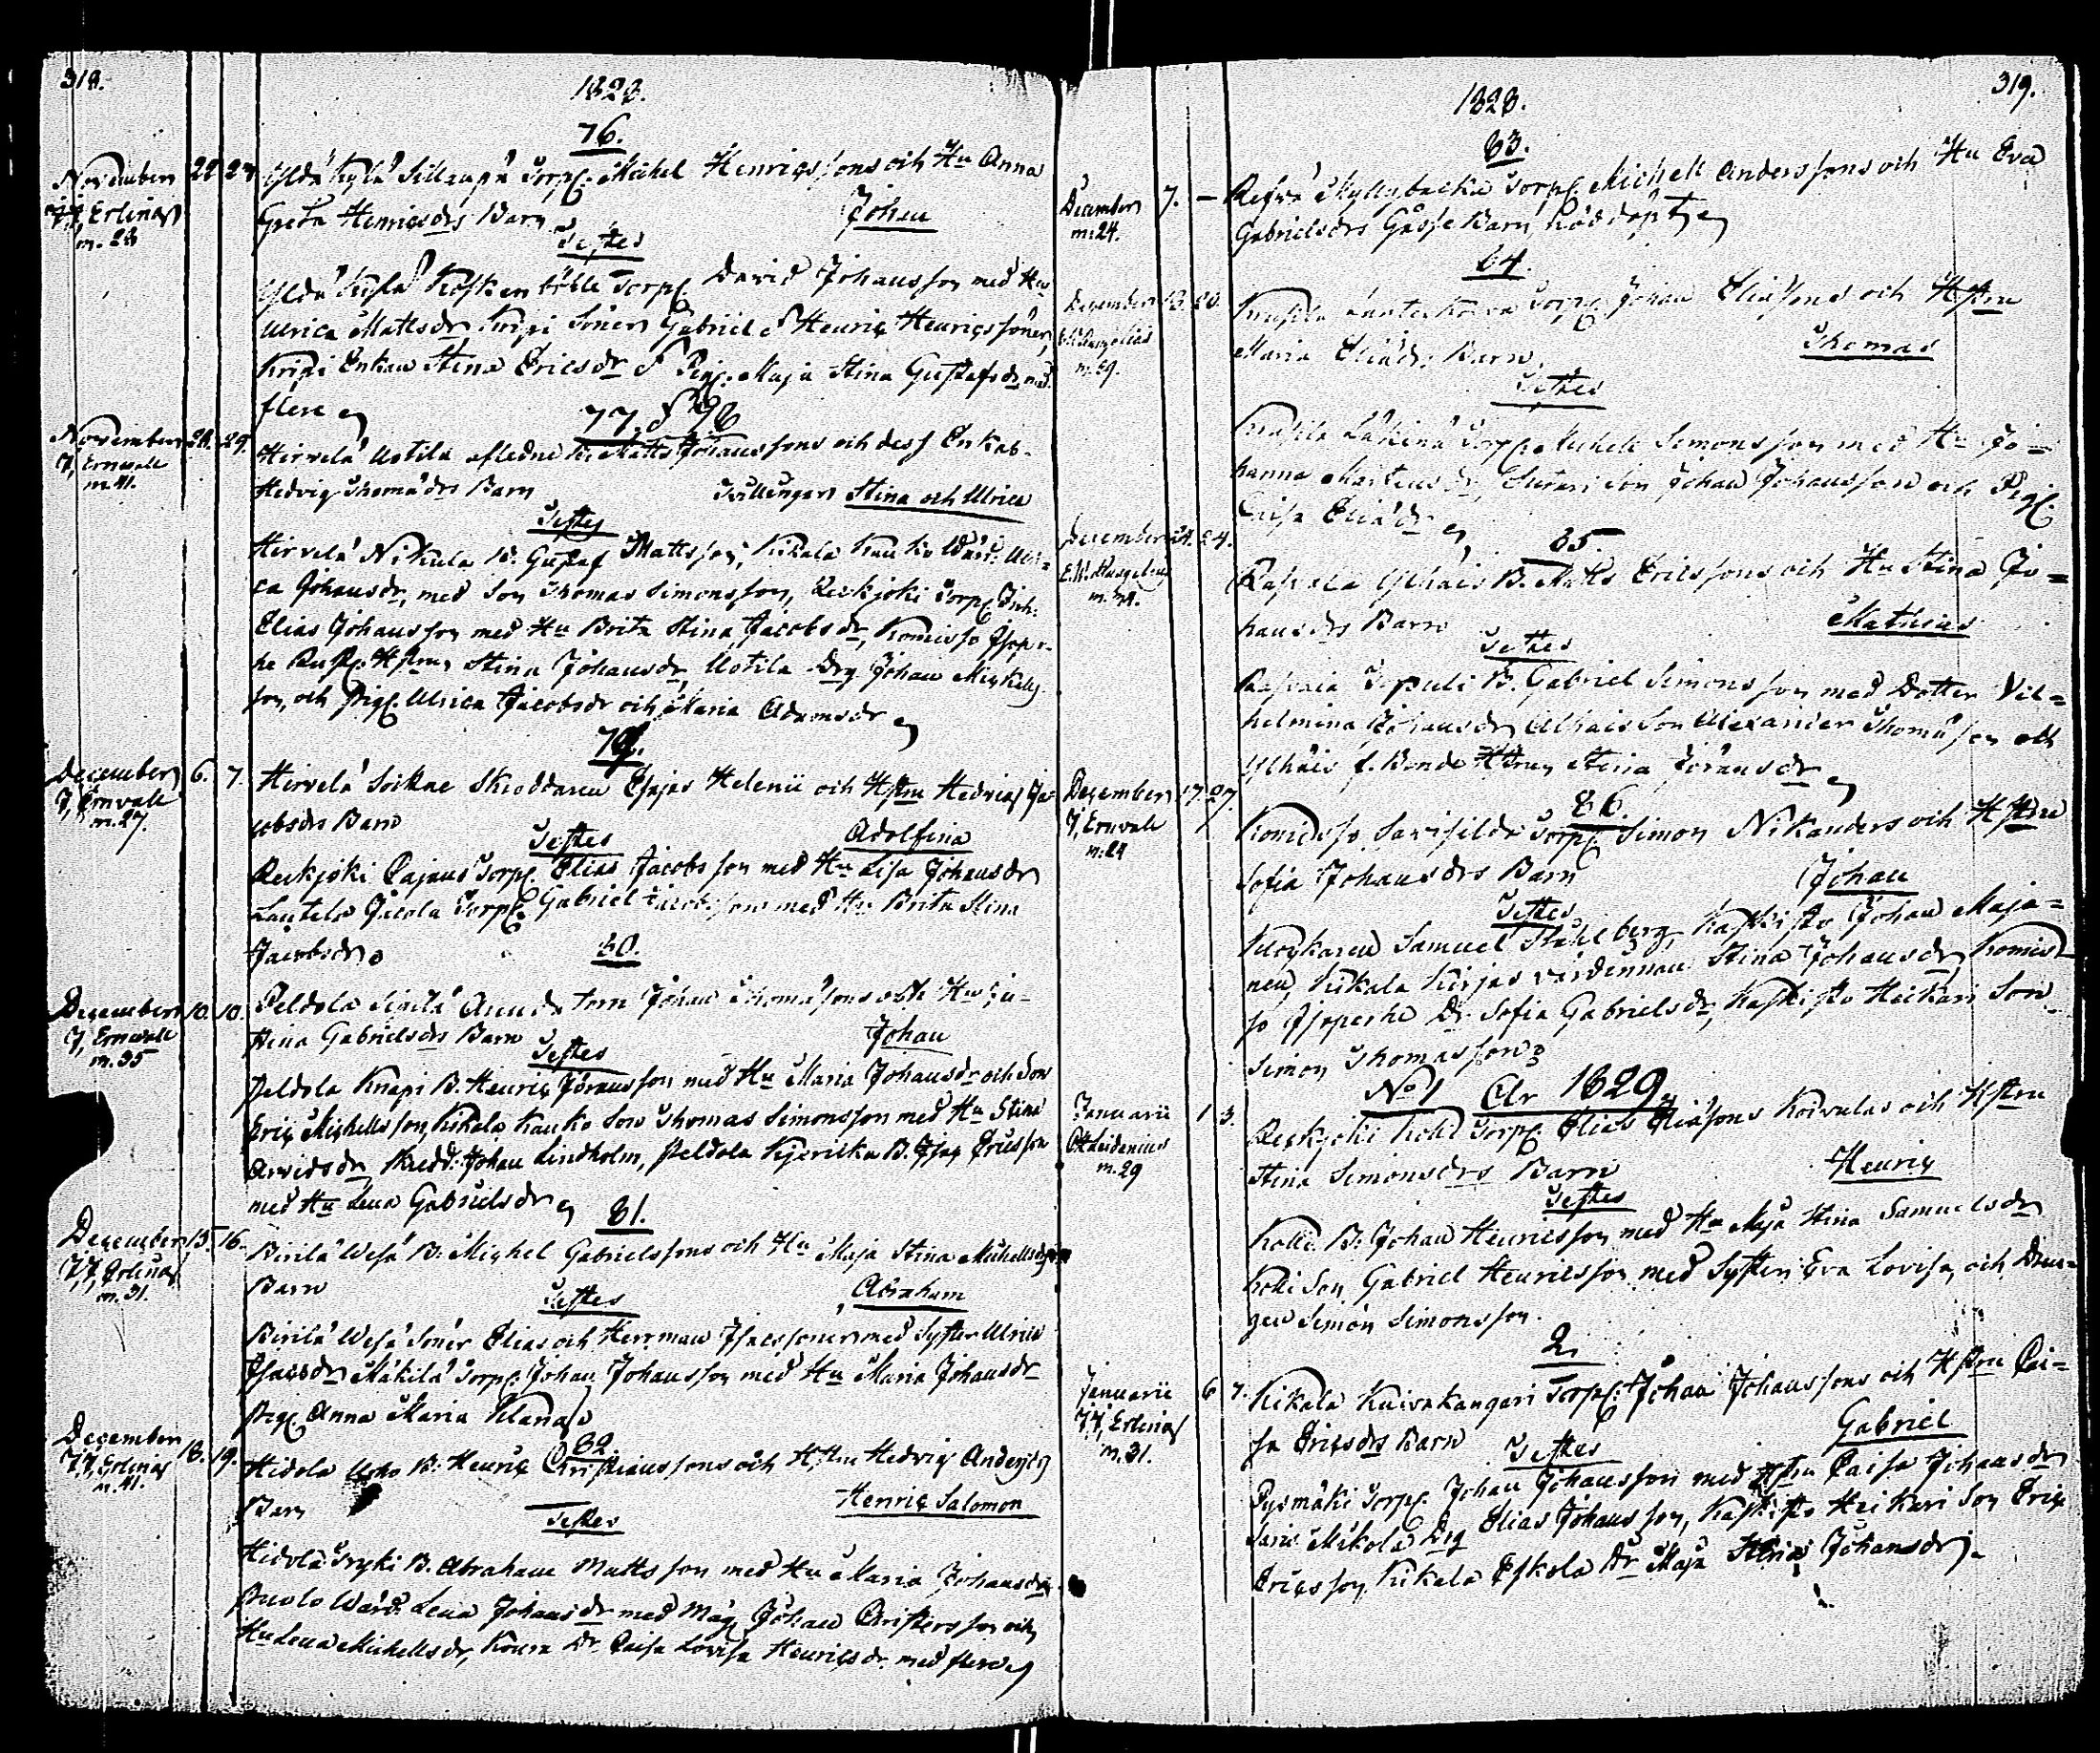 318.
1828.
76.
November 22 23
J, J, Erlines
m. 28
Yldä Kylä Sillanpä Torp. Michel Henricssons och Hu Anna
Greta Henricsdrs Barn
Johan
Testes
David Johansson med Hu
Ulrica Mattsdr, Knapi Söner Gabriel & Henric Henricssöner,
Knapi Enkan Stina Ericsdr & Pig. Maja Stina Gustafsdr med
flere
77. & 78
November 28. 29.
J, Ernvall
m. 41.
Hirvelä Uotila afledne B. Matts Johanssons och dess Enkas
Hedvig Thomädrs Barn
Tvillingarn Stina och Ulrica
Testes
Hirvelä Nikula B. Gustaf Mattsson, Kikala Kauko Värd. Ulri-
ca Johansdr, med Son Thomas Simonsson, Reckjoki Torp. Inh.
Elias Johansson med Hu Brita Stina Jacobsdr, Komisso Isoper-
he Hstrun Stina Johansdr, Uotila Drg Johan Mickels-
son, och Pig. Ulrica Jacobsdr och Maria Adamsdr
79.
December 6. 7.
J, Ernvall
m. 27.
Hirvelä Soikae Skräddaren Esajas Helenii och Hstru Hedvig Ja-
cobsdrs Barn
Adolfina
Testes
Reckjoki Pajaus Torp. Elias Jacobsson med Hu Lisa Johansdr
Lautela Jacola Torp. Gabriel Jacobsson med Hu Brita Stina
Jacobsdr
80.
December 10. 10.
J, Ernvall
m. 35
Peldola Sipilä Johan Thomäsons och Hu Ju-
stina Gabrielsdrs Barn
Johan
Testes
Peldola Knapi B. Henric Göransson med Hu Maria Johansdr och Son
Eric Michellsson, Kikala Kauko Son Thomas Simonsson med Hu Stina
Arvidsdr, Skrädd. Johan Lindholm, Peldola B. Isac Ericsson
med Hu Lena Gabrielsdr
81.
December 15. 16.
J, J, Erlines
m. 31.
Birilä Wesä B. Michel Gabrielssons och Hu Maja Stina Michellsdrs
Barn
Abraham
Testes
Birilä Wesä Söner Elias och Herrman Isacssöner med Syster Ulrica
Isacsdr, Mäkilä Torp. Johan Johansson med Hu Maria Johansdr
Pig. Anna Maria
82.
December 18. 19.
J, J, Erlines
m. 41.
Hidola B. Henric Christianssons och Hstru Hedvig Andersdrs
Barn
Henric Salomon
Testes
Hidola Tryki B. Abraham Mattsson med Hu Maria Johansdr
Puolo Värd. Lena Johansdr med Mäg Johan Christersson och
Hu Lena Michellsdr, Koura Dr. Caisa Lovisa Henricsdr med flere
319.
1828.
83.
December 7. –
m: 24.
Refvä Myllybacka Torp. Michell Anderssons och Hu Eva
Gabrielsdrs Gåsse Barn, nöddöpt
84.
December 13. 20.
m. 39.
Torp. Johan Eliäsons och Hstru
Maria Eliädrs Barn
Thomas
Testes
Torp. Michell Simonsson med Hu Jo-
hanna Martensdr, Suteri Son Johan Johansson och Pig.
Caisa Eliädr
85.
December 24. 24.
E. W. Mangelius
m. 34.
Raspala Ylhäis B. Matts Ericssons och Hu Stina Jo-
hansdrs Barn
Mathias
Testes
B. Gabriel Simonsson med Dotter Vil-
helmina Johansdr, Alhais Son Alexander Thomäson och
Ylhäis f. Bonde Hstrun Stina Göransdr
86.
December 17. 27
J, Ernvall
m: 24
Komisso Savisilda Torp. Simon Nikanders och Hstru
Sofia Johansdrs Barn
Johan
Testes
Samuel Stählberg, Kaskisto Johan Maja-
nen, Kikala Kirjas värdinnan Stina Johansdr, Komis-
so Isoperhe Dr. Sofia Gabrielsdr, Kaskisto Heickari Son
Simon Thomasson
No 1 År 1829.
Januarii 1 3.
m. 29
Reckjoki Kolli Torp. Elias Eliäsons Koivulas och Hstru
Stina Simonsdrs Barn
Henric
Testes
Kolli B. Johan Henricsson med Hu Maja Stina Samuelsdr
Kolli Son Gabriel Henricsson med Syster Eva Lovisa, och Drän-
gen Simon Simonsson.
2.
Januarii 6 7.
J, J, Erlines
m. 31.
Kikala Kuivakangari Torp. Johan Johanssons och Hstru Cai-
sa Ericsdrs Barn
Gabriel
Testes
Pysmäki Torp. Johan Johansson med Hstru Caisa Johansdr
Mikola Drg Elias Johansson, Kaskisto Heikari Son Eric
Ericsson, Kikala Eskola Dr Maja Stina Johansdr.